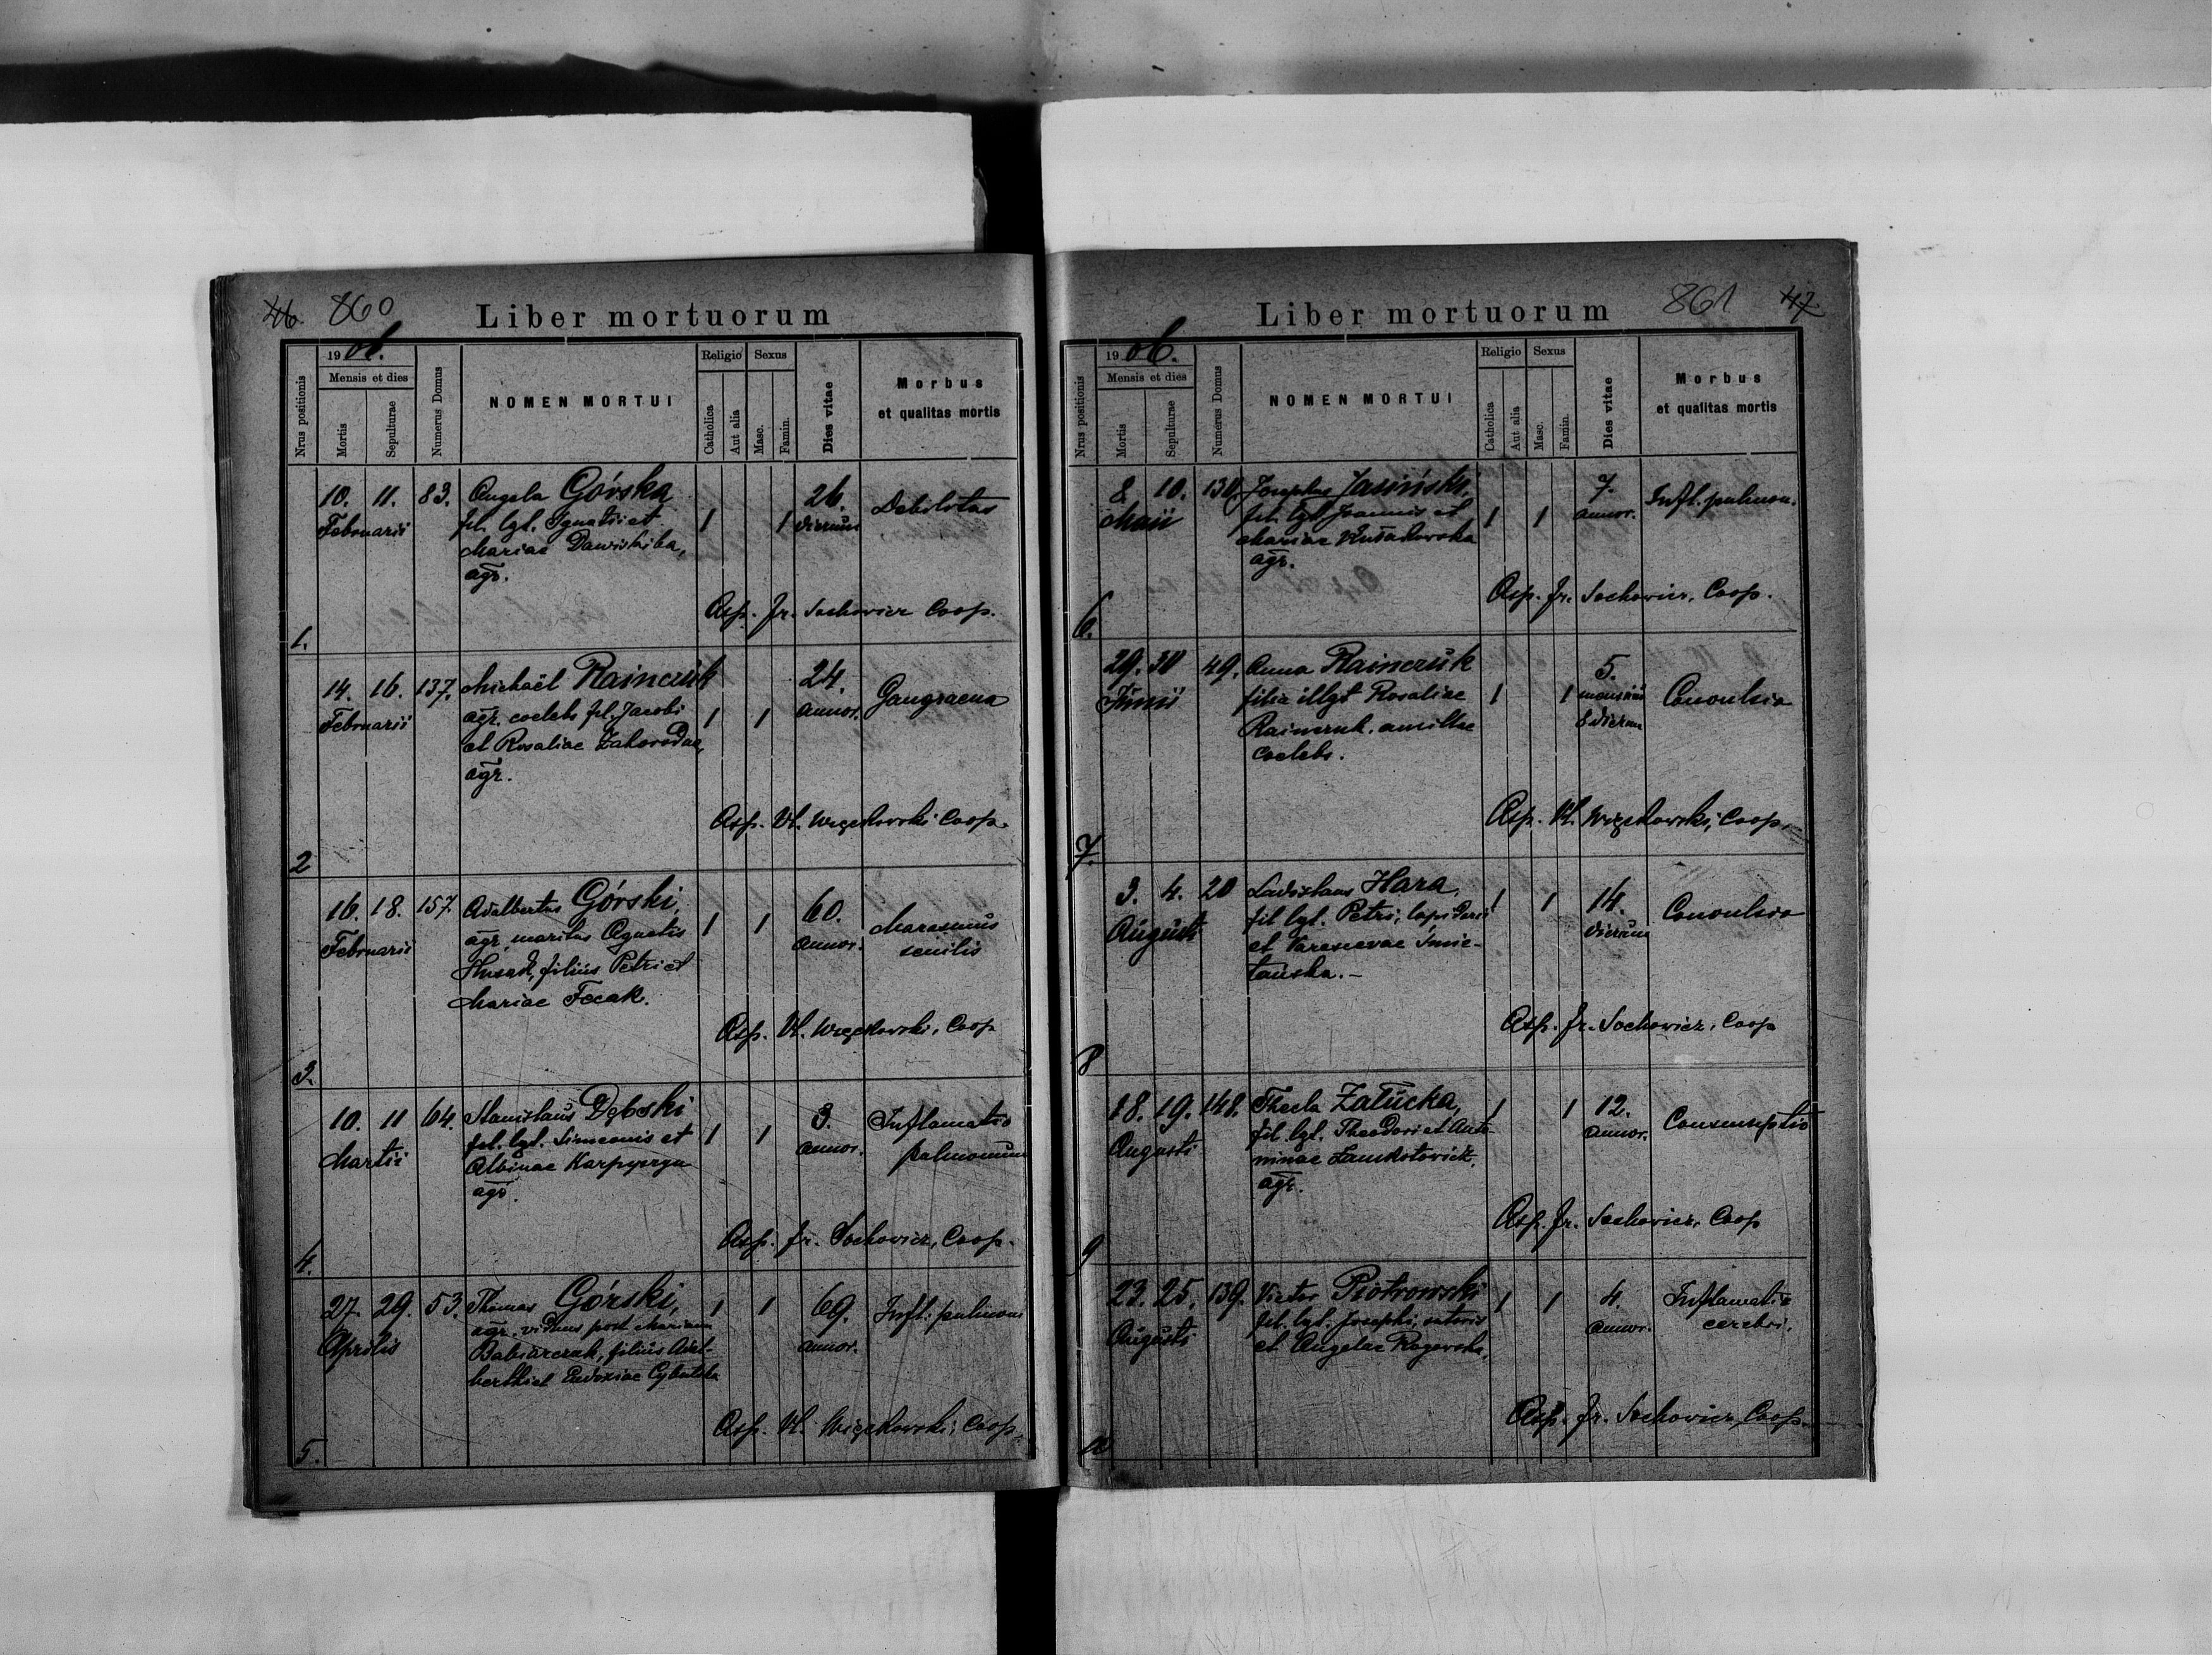 46. 860
Liber mortuorum
1906.
Mensis et dies
Nrus positionis
Mortis
Sepulturae
Numerus Domus
NOMEN MORTUI
Religio
Sexus
Catholica
Aut alia
Masc.
Famin.
Dies vitae
Morbus
et qualitas mortis
10. 11. 83. Angela Górska 26. Debilitas
Februarii fil. lgt. Ignatii et 1 1 dierum
Mariae
agr.
Asp. Fr. Sochowicz Coop.
1.
14. 16. 137. Michaël Rainczuk 24. Gangraena
Februarii agr. coelebs fil. Jacobi 1 1 annor.
et Rosaliae Zahorodna,
agr.
Asp. Vl. Coop.
2
16. 18. 157 Adalbertus Górski, 1 1 60. Marasmus
Februarii agr. maritus Agnetis annor. senilis
Husak, filius Petri et
Mariae
Asp. Vl. Coop
3.
10. 11 64. Stanislaus Dębski 3. Inflamatio
Martii fil. lgt. Simeonis et 1 1 annor. pulmonum
Albinae
agr.
Asp. Fr. Sochowicz, Coop.
4.
27. 29. 53. Thomas Górski, 1 1 69. Infl. pulmonu
Aprilis agr. viduus post Mariam annor.
filius Adal-
berthi et Eudoxiae
Asp. Vl. Coop.
5.
Liber mortuorum
861 47
1906.
Mensis et dies
Nrus positionis
Mortis
Sepulturae
Numerus Domus
NOMEN MORTUI
Religio
Sexus
Catholica
Aut alia
Masc.
Famin.
Dies vitae
Morbus
et qualitas mortis
8. 10. 130. Josephus Jasiński, 7. Infl. pulmon.
Maii fil. lgt. Joannis et 1 1 annor.
Mariae
agr.
Asp. Fr. Sochowicz, Coop.
6.
29. 30 49. Anna Rainczuk 5. Convulsio
Junii filia illgt Rosaliae 1 1 mensium
Rainczuk, ancillae 8 dierum
coelebs.
Asp. Vl. Coop.
7.
3. 4. 20 Ladislaus Hara, 1 1 14. Convulsio
Augusti fil. lgt. Petri, lapidarii dierum
et
Asp. Fr. Sochowicz, Coop
8
18. 19. 148. Thecla Załucka, 1 1 12. Consumptio
Augusti fil. lgt. Theodori et Anto- annor.
ninae
agr.
Asp. Fr. Sochowicz, Coop
9
23. 25. 139. Victor Piotrowski 1 1 4. Inflamatio
Augusti fil. lgt. Josephi, sutoris annor. cerebri.
et Angelae Rogowska,
Asp. Fr. Sochowicz, Coop.
10